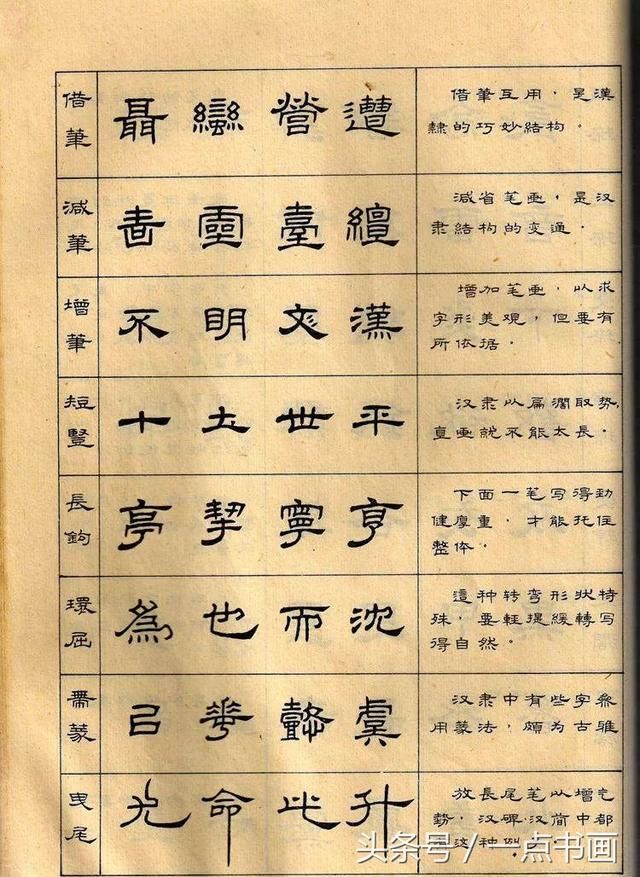 借筆
聶 蠻 營 遭
借筆互用，是漢
隸的巧妙結构。
减筆
書 靈 臺 繵
减省笔画，是汉
隶結构的变通。
增筆
不 明 漢
增加笔画，以求
字形美观，但要有
所依据。
短豎
十 土 世 平
汉隶以扁濶取势，
直画就不能太長。
長鉤
亭 挈 寧 亨
下面一笔写得劲
健厚重，才能托住
整体。
環屈
為 也 而 沈
這种转弯形状特
殊，要輕提緩轉写
得自然。
帶篆
華 懿 虞
汉隶中有些字参
用篆法，颇为古雅
曳尾
光 命 此 升
放長尾笔以增气
势，汉碑汉简中都
这种例。
头条号/一点书画